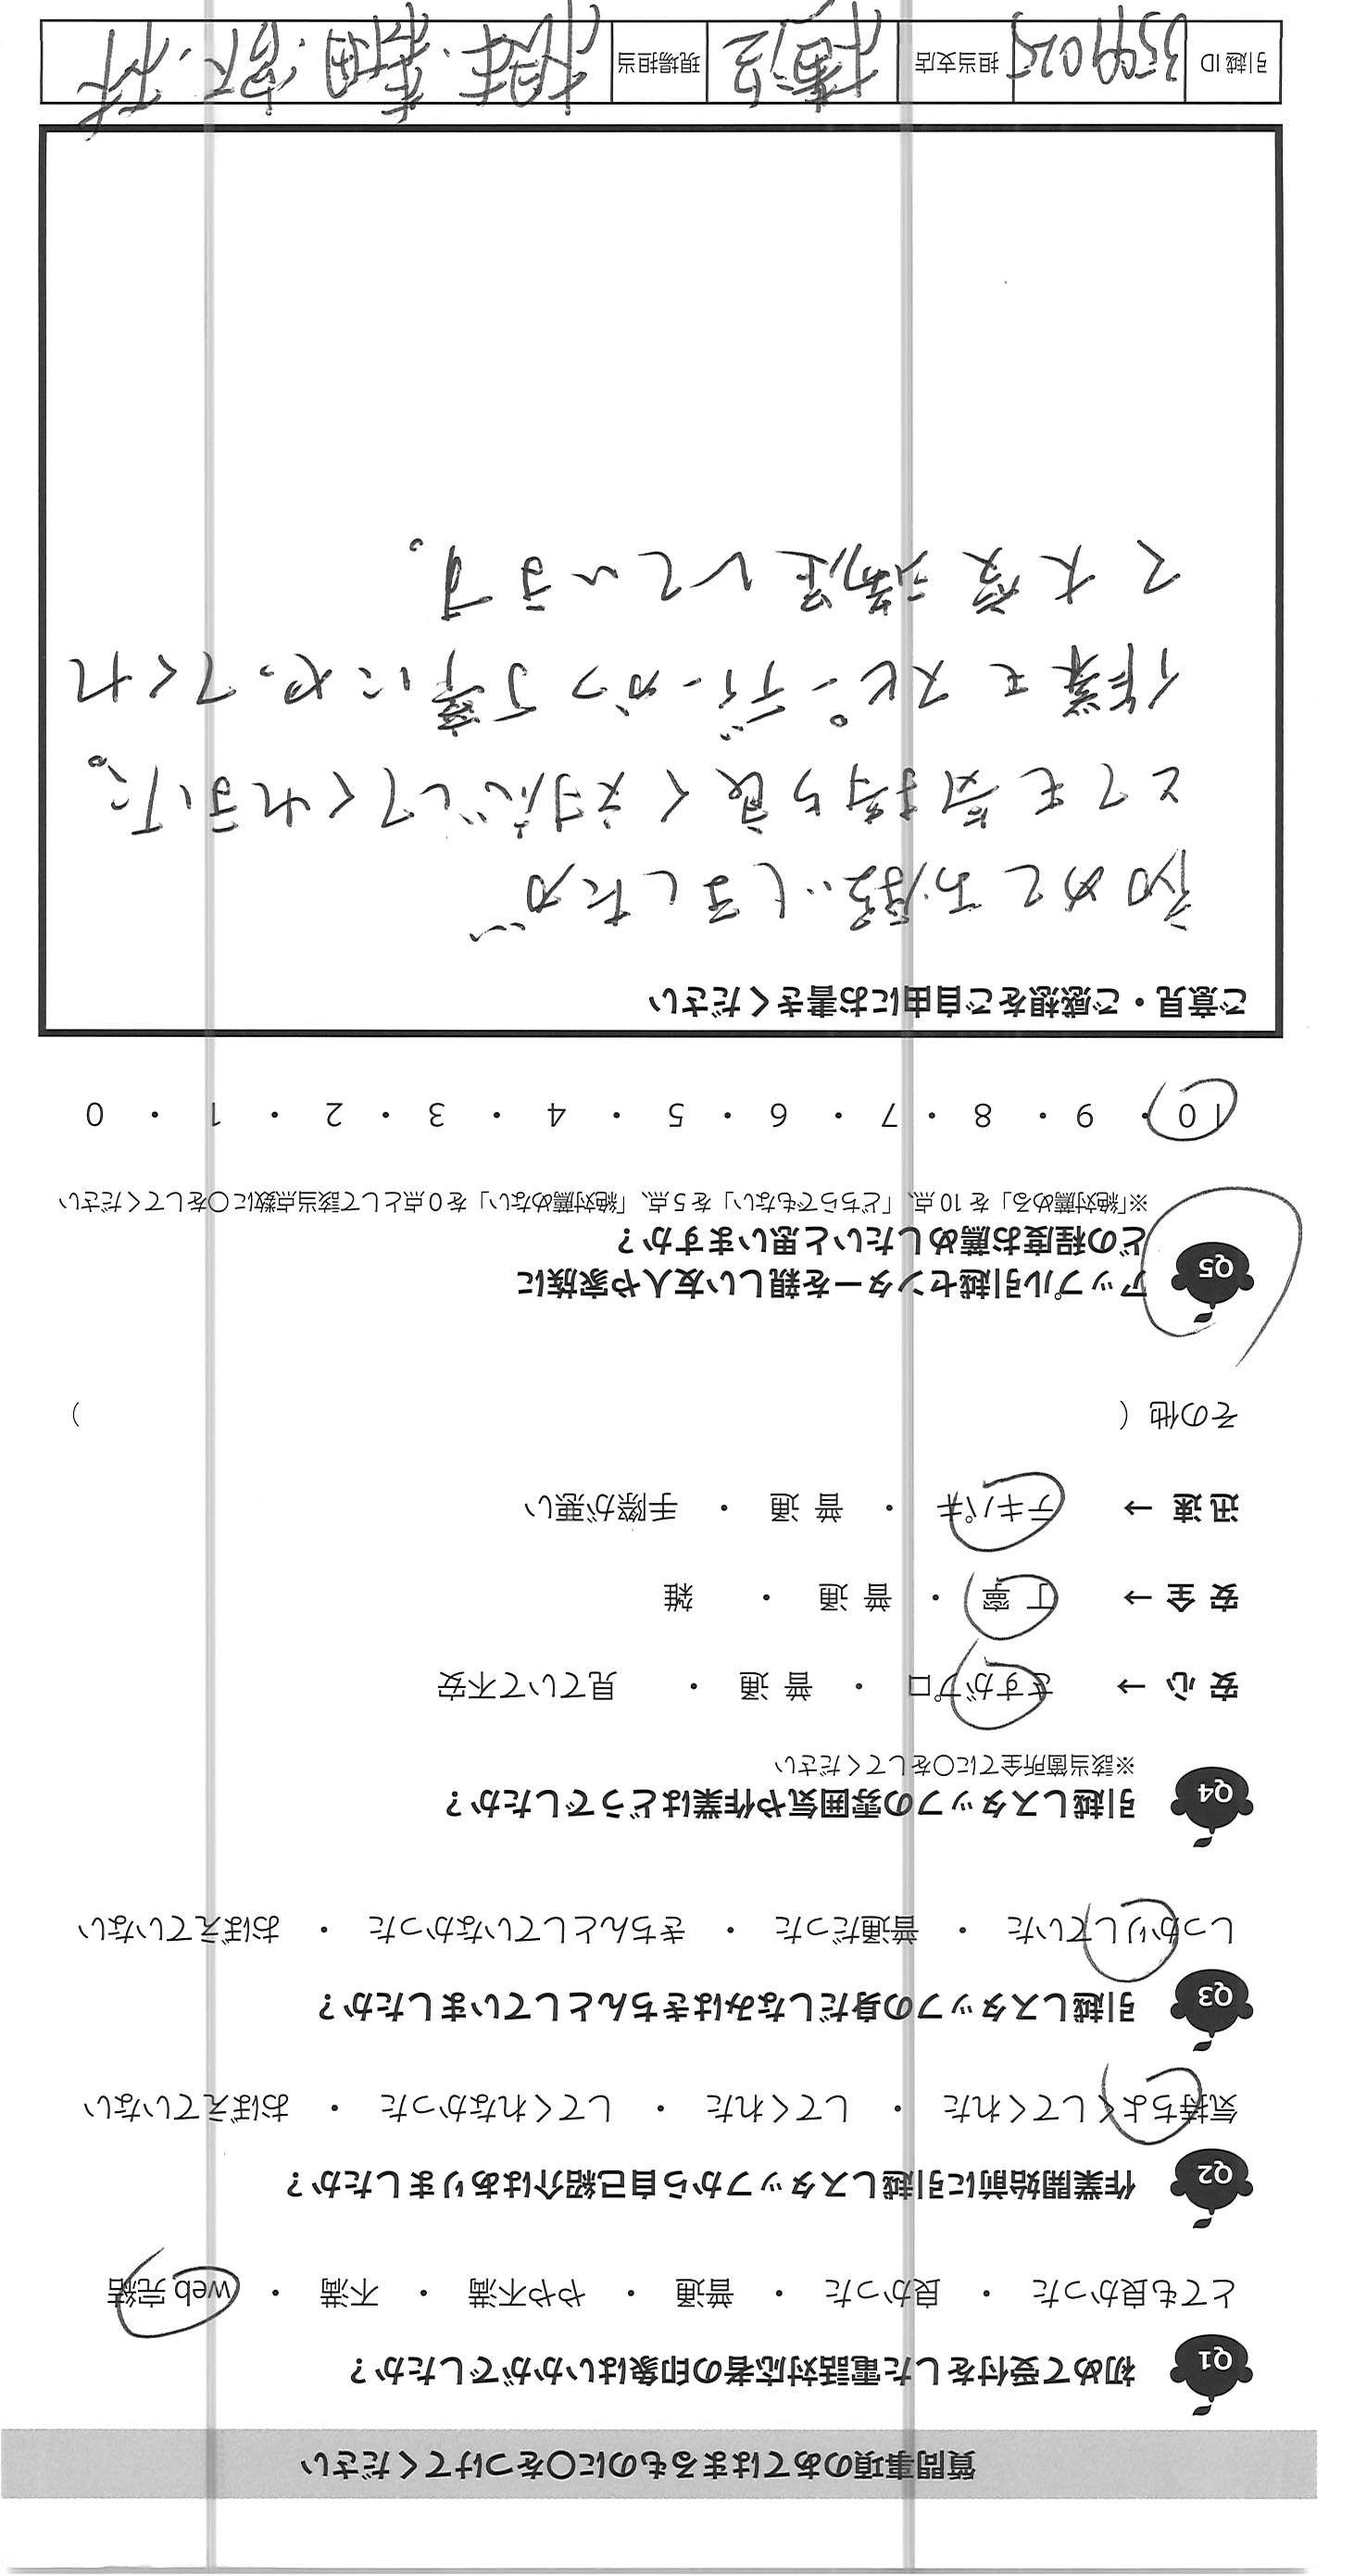 質問事項のあてはまるものに○をつけてください
Q1 初めて受付をした電話対応者の印象はいかがでしたか？
とても良かった ・ 良かった ・ 普通 ・ やや不満 ・ 不満 ・ web 完結
Q2 作業開始前に引越しスタッフから自己紹介はありましたか？
気持ちよくしてくれた ・ してくれた ・ してくれなかった ・ おぼえていない
Q3 引越しスタッフの身だしなみはきちんとしていましたか？
しっかりしていた ・ 普通だった ・ きちんとしていなかった ・ おぼえていない
Q4 引越しスタッフの雰囲気や作業はどうでしたか？
※該当箇所全てに○をしてください
安 心 → さすがプロ ・ 普 通 ・ 見ていて不安
安 全 → 丁 寧 ・ 普 通 ・ 雑
迅 速 → テキパキ ・ 普 通 ・ 手際が悪い
その他（ ）
Q5 アップル引越センターを親しい友人や家族に
どの程度お薦めしたいと思いますか？
※「絶対薦める」を 10 点、「どちらでもない」を 5 点、「絶対薦めない」を 0 点として該当点数に○をしてください
10 ・ 9 ・ 8 ・ 7 ・ 6 ・ 5 ・ 4 ・ 3 ・ 2 ・ 1 ・ 0
ご意見・ご感想をご自由にお書きください
初めてお願いしましたが
とても気持ち良く対応してくれました。
作業もスピーディーかつ丁寧にやってくれ
て大変満足しています。
引越 ID 3599025 担当支店 現場担当